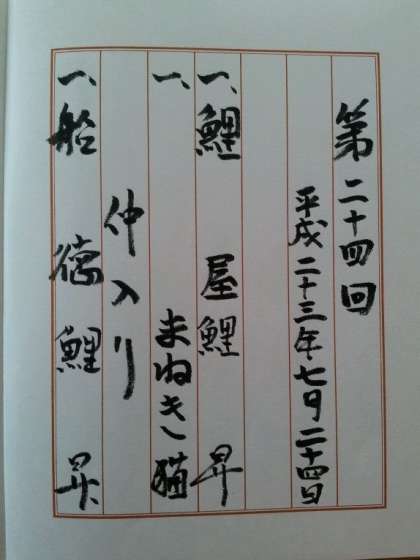 第二十四回
平成二十三年七月二十四日
一、鯉屋鯉昇
一、まねき猫
仲入り
一、船徳鯉昇